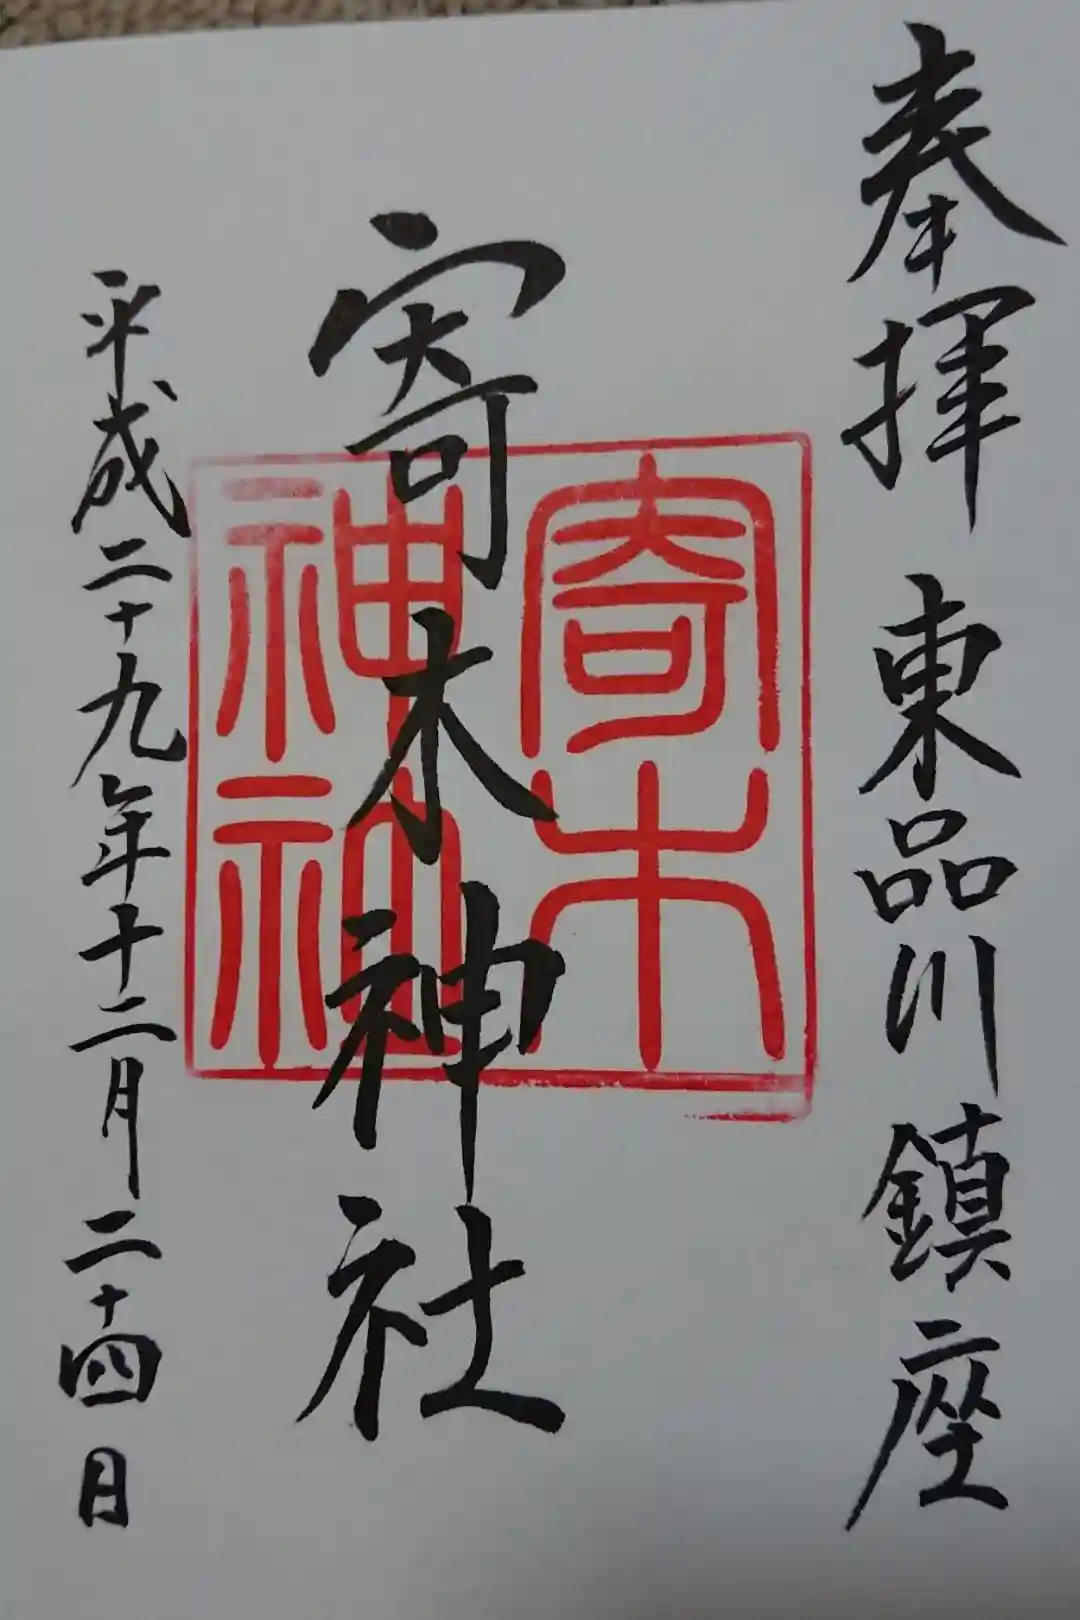 奉拝 東品川鎮座
寄木神社
平成二十九年十二月二十四日
寄木
神社